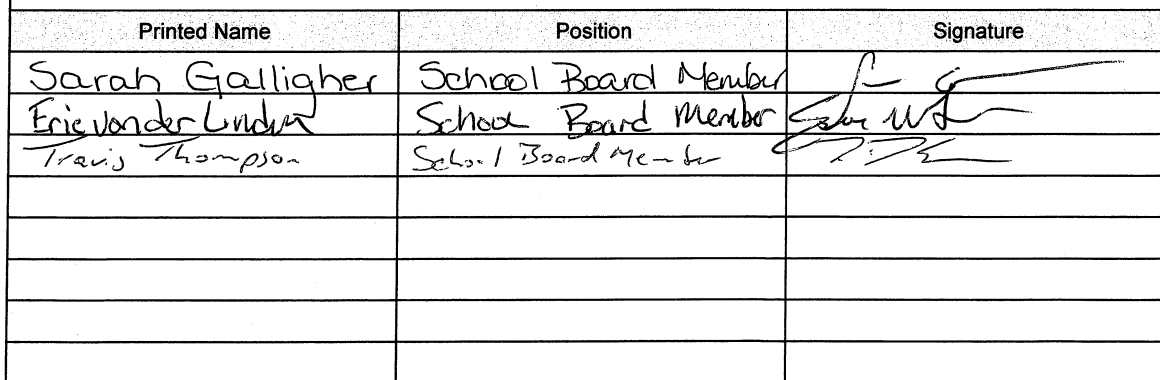 Printed Name Position Signature
Sarah Galligher School Board Member
Eric vander Linden School Board Member
Travis Thompson School Board Member